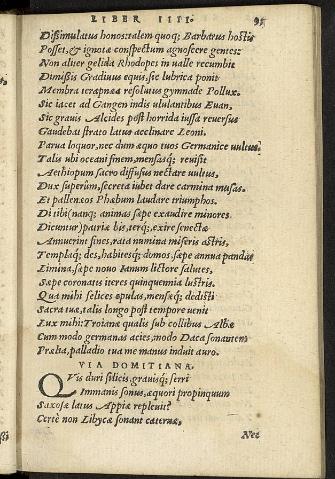 LIBER IIII.
Dissimulatus honos: talem quoq; Barbarus hostis
Posset, & ignotæ conspectum agnoscere gentes:
Non aliter gelida Rhodopes in ualle recumbit
Dimissis Gradiuus equis, sic lubrica ponit
Membra terapnæa resolutus gymnade Pollux.
Sic iacet ad Gangen indis ululantibus Euan,
Sic grauis Alcides post horrida iussa reuersus
Gaudebat strato latus acclinare Leoni.
Parua loquor, nec dum æquo tuos Germanice uultus.
Talis ubi oceani finem, mensasq; reuisit
Aethiopum sacro diffusus nectare uultus,
Dux superûm, secreta iubet dare carmina musas.
Et pallenæos Phœbum laudare triumphos.
Di tibi (nanq; animas sæpe exaudire minores
Dicuntur) patriæ bis, terq;, exire senectæ
Annuerint fines, rata numina miseris astris,
Templaq; des, habitesq; domos. sæpe annua pandas
Limina. sæpe nouo Ianum lictore salutes,
Sæpe coronatis iteres quinquennia lustris.
Qua mihi felices epulas, mensæq; dedisti
Sacra tuæ, talis longo post tempore uenit
Lux mihi: Troianæ qualis sub collibus Albæ
Cum modo germanas acies, modo Daca sonantem
Prælia, palladio tua me manus induit auro.
VIA DOMITIANA.
QVis duri silicis, grauisq; ferri
Immanis sonus, æquori propinquum
Saxosæ latus Appiæ repleuit?
Certè non Libycæ sonant cateruæ,
Nec